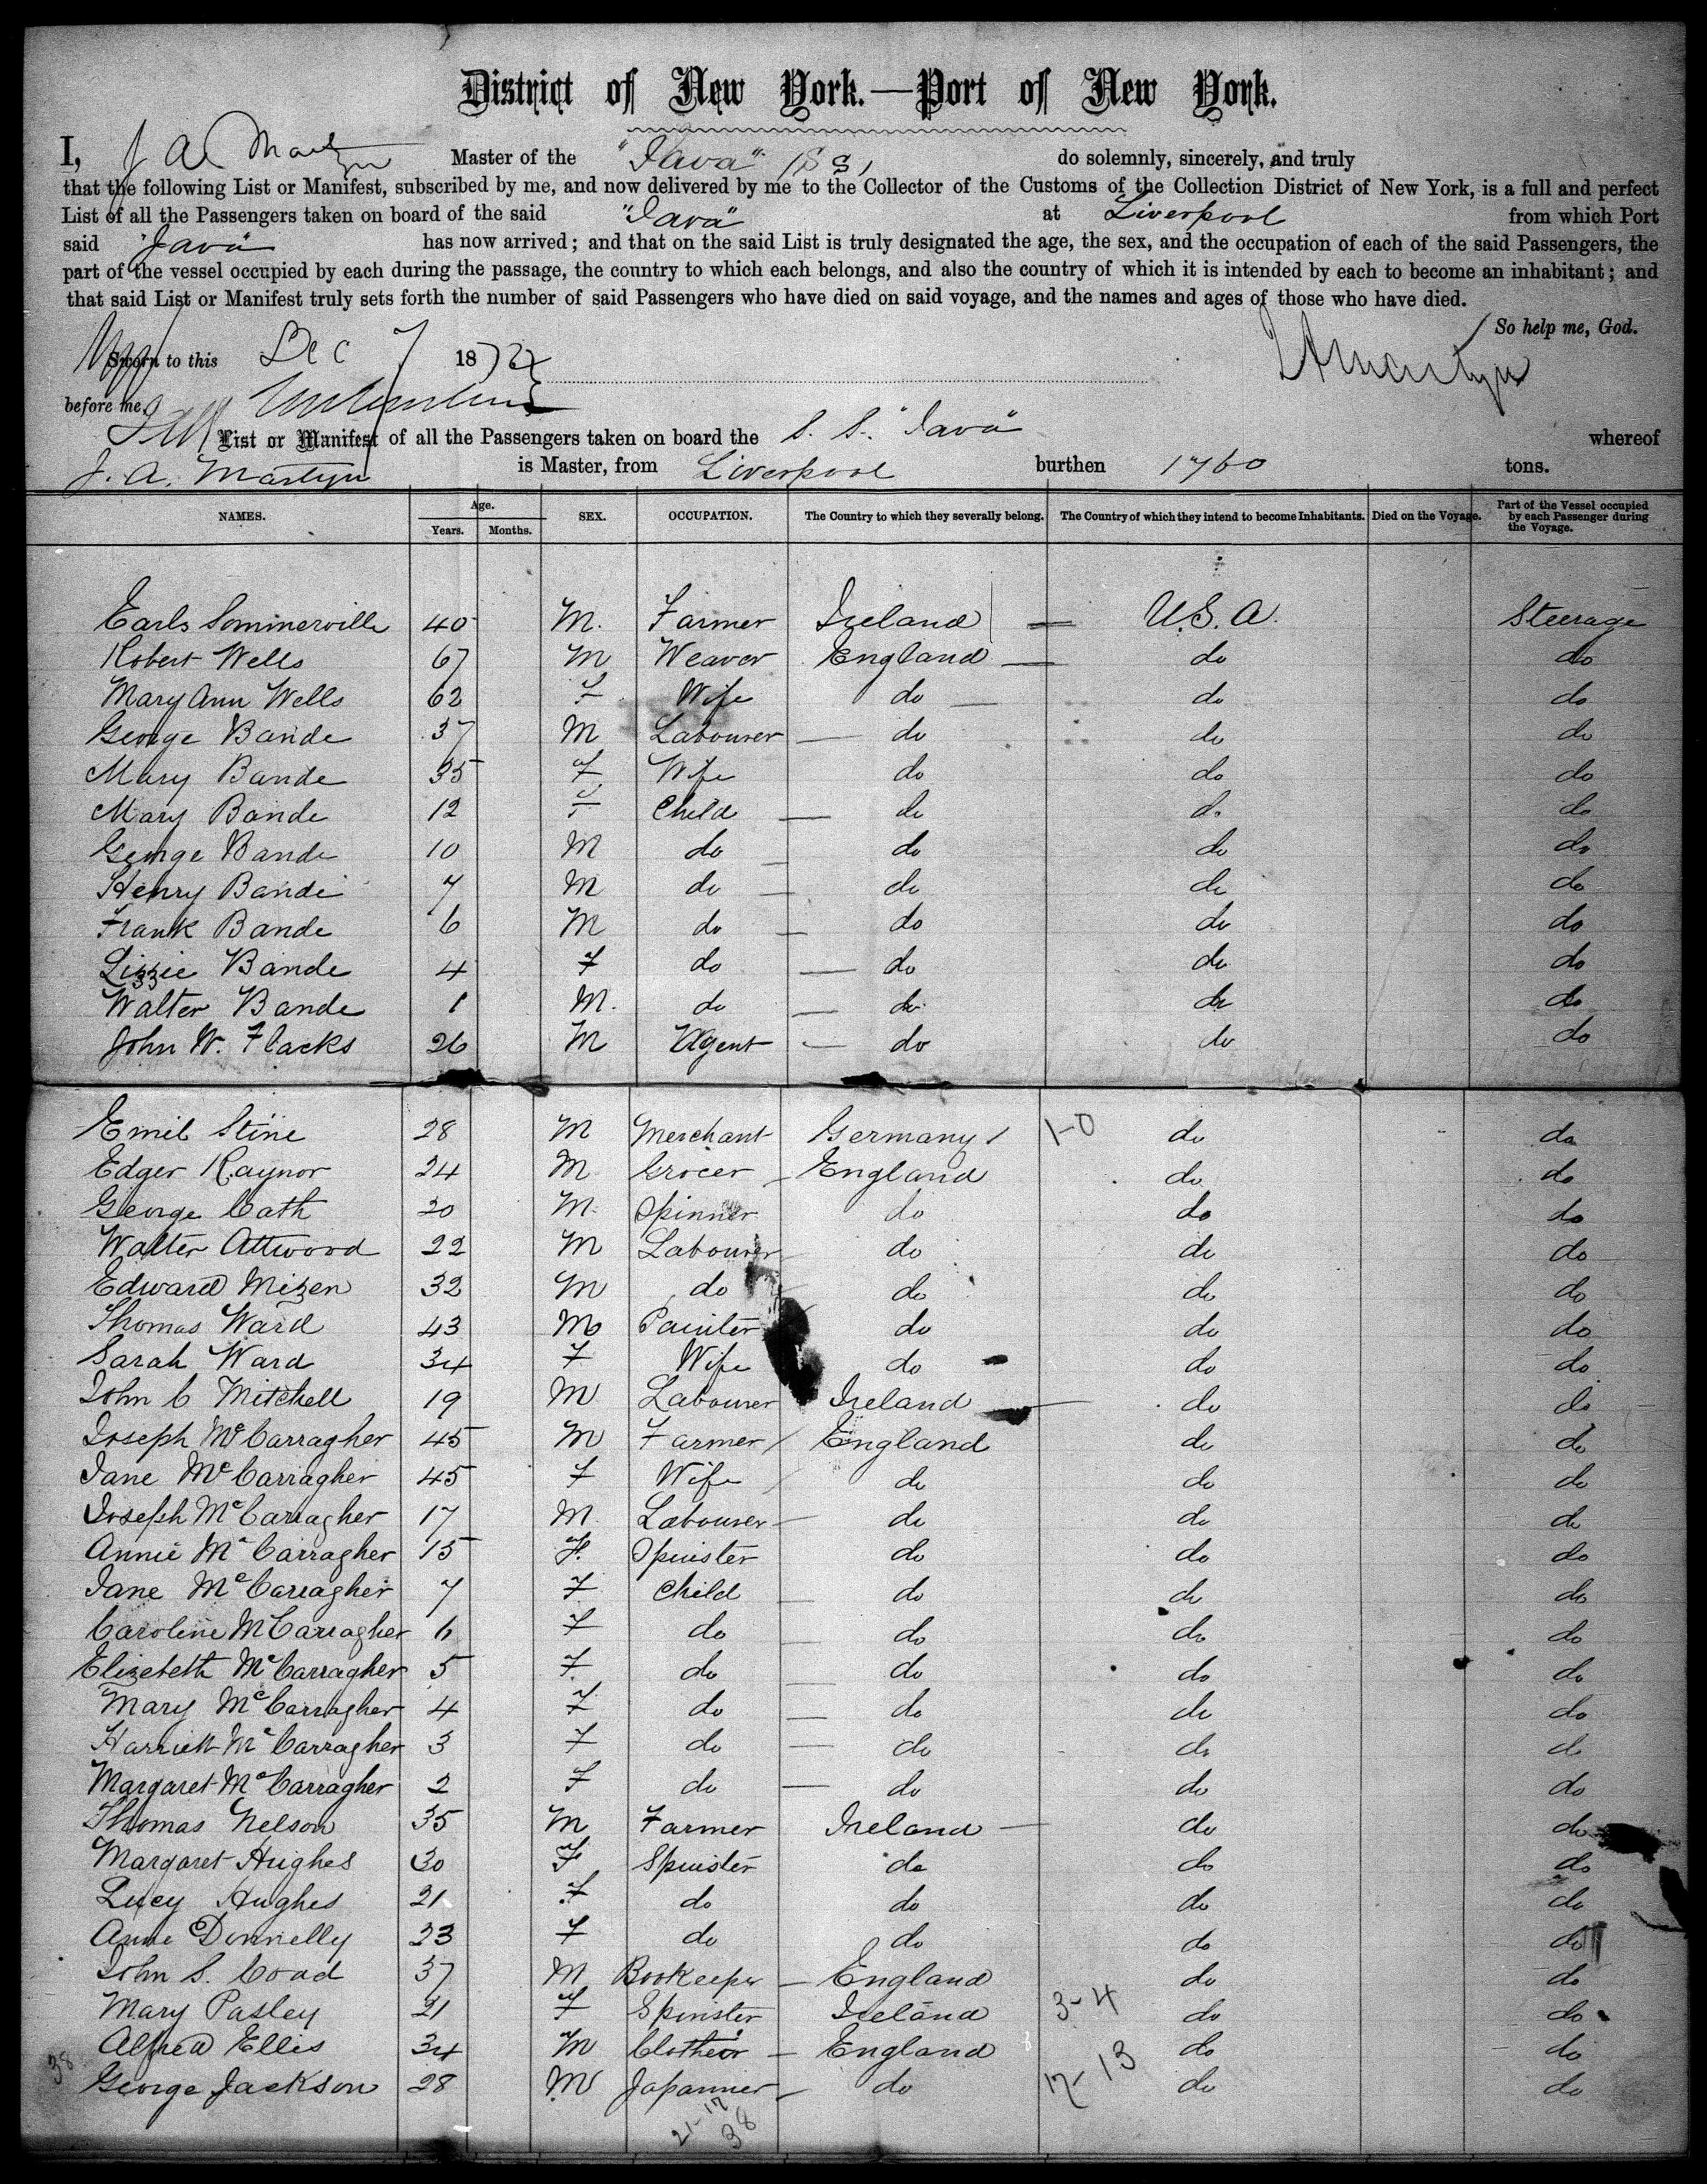 District of New York.—Port of New York.
I, J A Martyn Master of the "Java" (SS) do solemnly, sincerely, and truly
that the following List or Manifest, subscribed by me, and now delivered by me to the Collector of the Customs of the Collection District of New York, is a full and perfect
List of all the Passengers taken on board of the said "Java" at Liverpool from which Port
said "Java" has now arrived; and that on the said List is truly designated the age, the sex, and the occupation of each of the said Passengers, the
part of the vessel occupied by each during the passage, the country to which each belongs, and also the country of which it is intended by each to become an inhabitant; and
that said List or Manifest truly sets forth the number of said Passengers who have died on said voyage, and the names and ages of those who have died.
So help me, God.
Sworn to this Dec 7 1872 JAMartyn
before me,
List or Manifest of all the Passengers taken on board the S. S. "Java" whereof
J. A. Martyn is Master, from Liverpool burthen 1760 tons.
NAMES. Age. Years. Months. SEX. OCCUPATION. The Country to which they severally belong. The Country of which they intend to become Inhabitants. Died on the Voyage. Part of the Vessel occupied by each Passenger during the Voyage.
Earls Sommerville 40 M. Farmer Ireland — U.S.A. Steerage
Robert Wells 67 M Weaver England — do do
Mary Ann Wells 62 F Wife do — do do
George Bande 37 M Labourer — do do do
Mary Bande 35 F Wife do do do
Mary Bande 12 F Child — do do do
George Bande 10 M do — do do do
Henry Bande 7 M do — do do do
Frank Bande 6 M do — do do do
Lizzie Bande 4 F do — do do do
Walter Bande 1 M. do — do do do
John W. Flacks 26 M Agent — do do do
Emil Stine 28 M Merchant Germany / 1-0 do do
Edger Raynor 24 M Grocer – England do do
George Cath 20 M. Spinner do do do
Walter Attwood 22 M Labourer do do do
Edward Mizen 32 M do do do do
Thomas Ward 43 M Painter do do do
Sarah Ward 34 F Wife do do do
John C Mitchell 19 M Labourer Ireland — do do
Joseph McCarragher 45 M Farmer / England do do
Jane McCarragher 45 F Wife / do do do
Joseph McCarragher 17 M. Labourer – do do do
Annie McCarragher 15 F. Spinster do do do
Jane McCarragher 7 F Child — do do do
Caroline McCarragher 6 F do — do do do
Elizebeth McCarragher 5 F. do — do do do
Mary McCarragher 4 F do — do do do
Harriett McCarragher 3 F do — do do do
Margaret McCarragher 2 F do — do do do
Thomas Nelson 35 M Farmer Ireland — do do
Margaret Hughes 30 F Spinster do do do
Lucy Hughes 21 F do do do do
Anne Donnelly 23 F do do do do
John S. Coad 37 M Bookeeper – England do do
Mary Pasley 21 F Spinster Ireland 3-4 do do
Alfred Ellis 34 M Clothier – England do do
38 George Jackson 28 M Japanner – do 17-13 do do
21-17
38